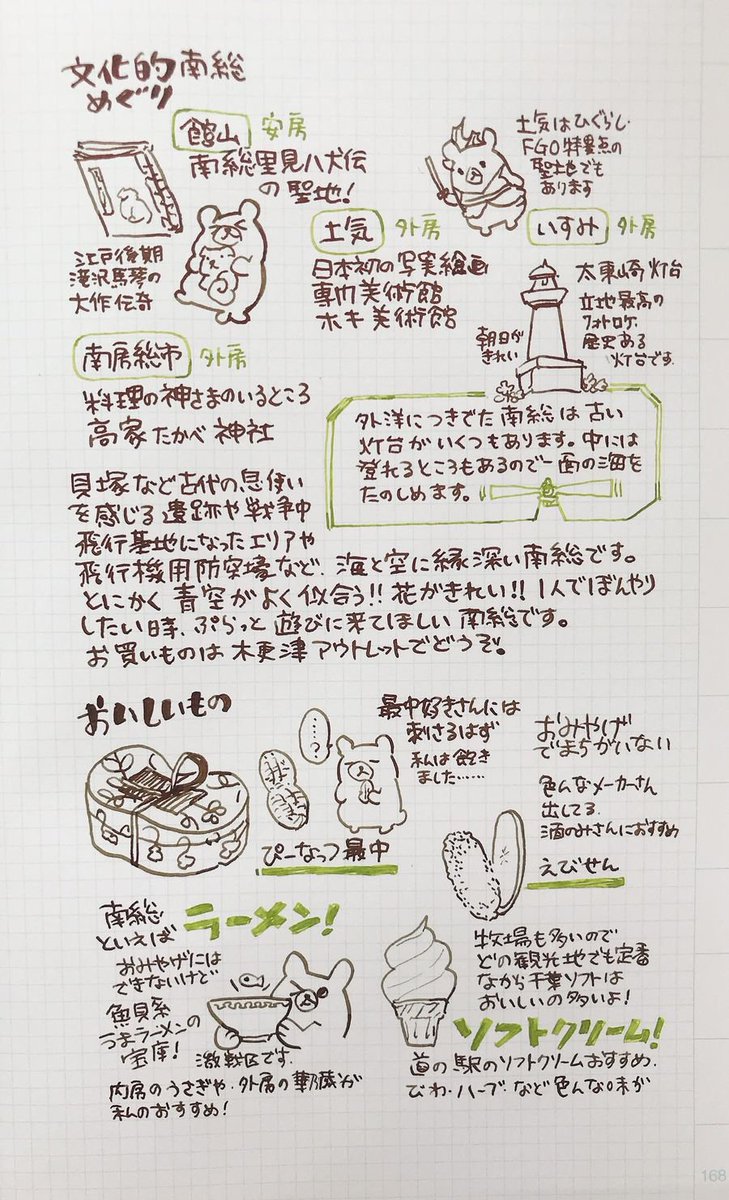 文化的南総
めぐり
館山 安房
南総里見八犬伝
の聖地!
江戸後期
滝沢馬琴の
大作伝奇
土気はひぐらし
FGO特異点の
聖地でも
あります
土気 外房
日本初の写実絵画
専門美術館
ホキ美術館
いすみ 外房
太東崎灯台
立地最高の
フォトロケ.
歴史ある
灯台です.
朝日が
きれい
南房総市 外房
料理の神さまのいるところ
高家 たかべ 神社
外洋につきでた南総は古い
灯台がいくつもあります。中には
登れるところもあるので一面の海を
たのしめます。
貝塚など古代の息使い
を感じる遺跡や戦争中
飛行基地になったエリアや
飛行機用防空壕など、海と空に縁深い南総です。
とにかく青空がよく似合う!!花がきれい!!1人でぼんやり
したい時、ぷらっと遊びに来てほしい南総です。
お買いものは木更津アウトレットでどうぞ。
おいしいもの
…?
最中好きさんには
刺さるはず
私は飽き
ました……
ぴーなっつ最中
おみやげ
でまちがいない
色んなメーカーさん
出してる.
酒のみさんにおすすめ
えびせん
南総
といえば
ラーメン!
おみやげには
できないけど
魚貝系
うまラーメンの
宝庫!
激戦区です.
内房のうさぎや・外房の
私のおすすめ!
牧場も多いので
どの観光地でも定番
ながら千葉ソフトは
おいしいの多いよ!
ソフトクリーム!
道の駅のソフトクリームおすすめ.
びわ・ハーブ・など色んな味が
168